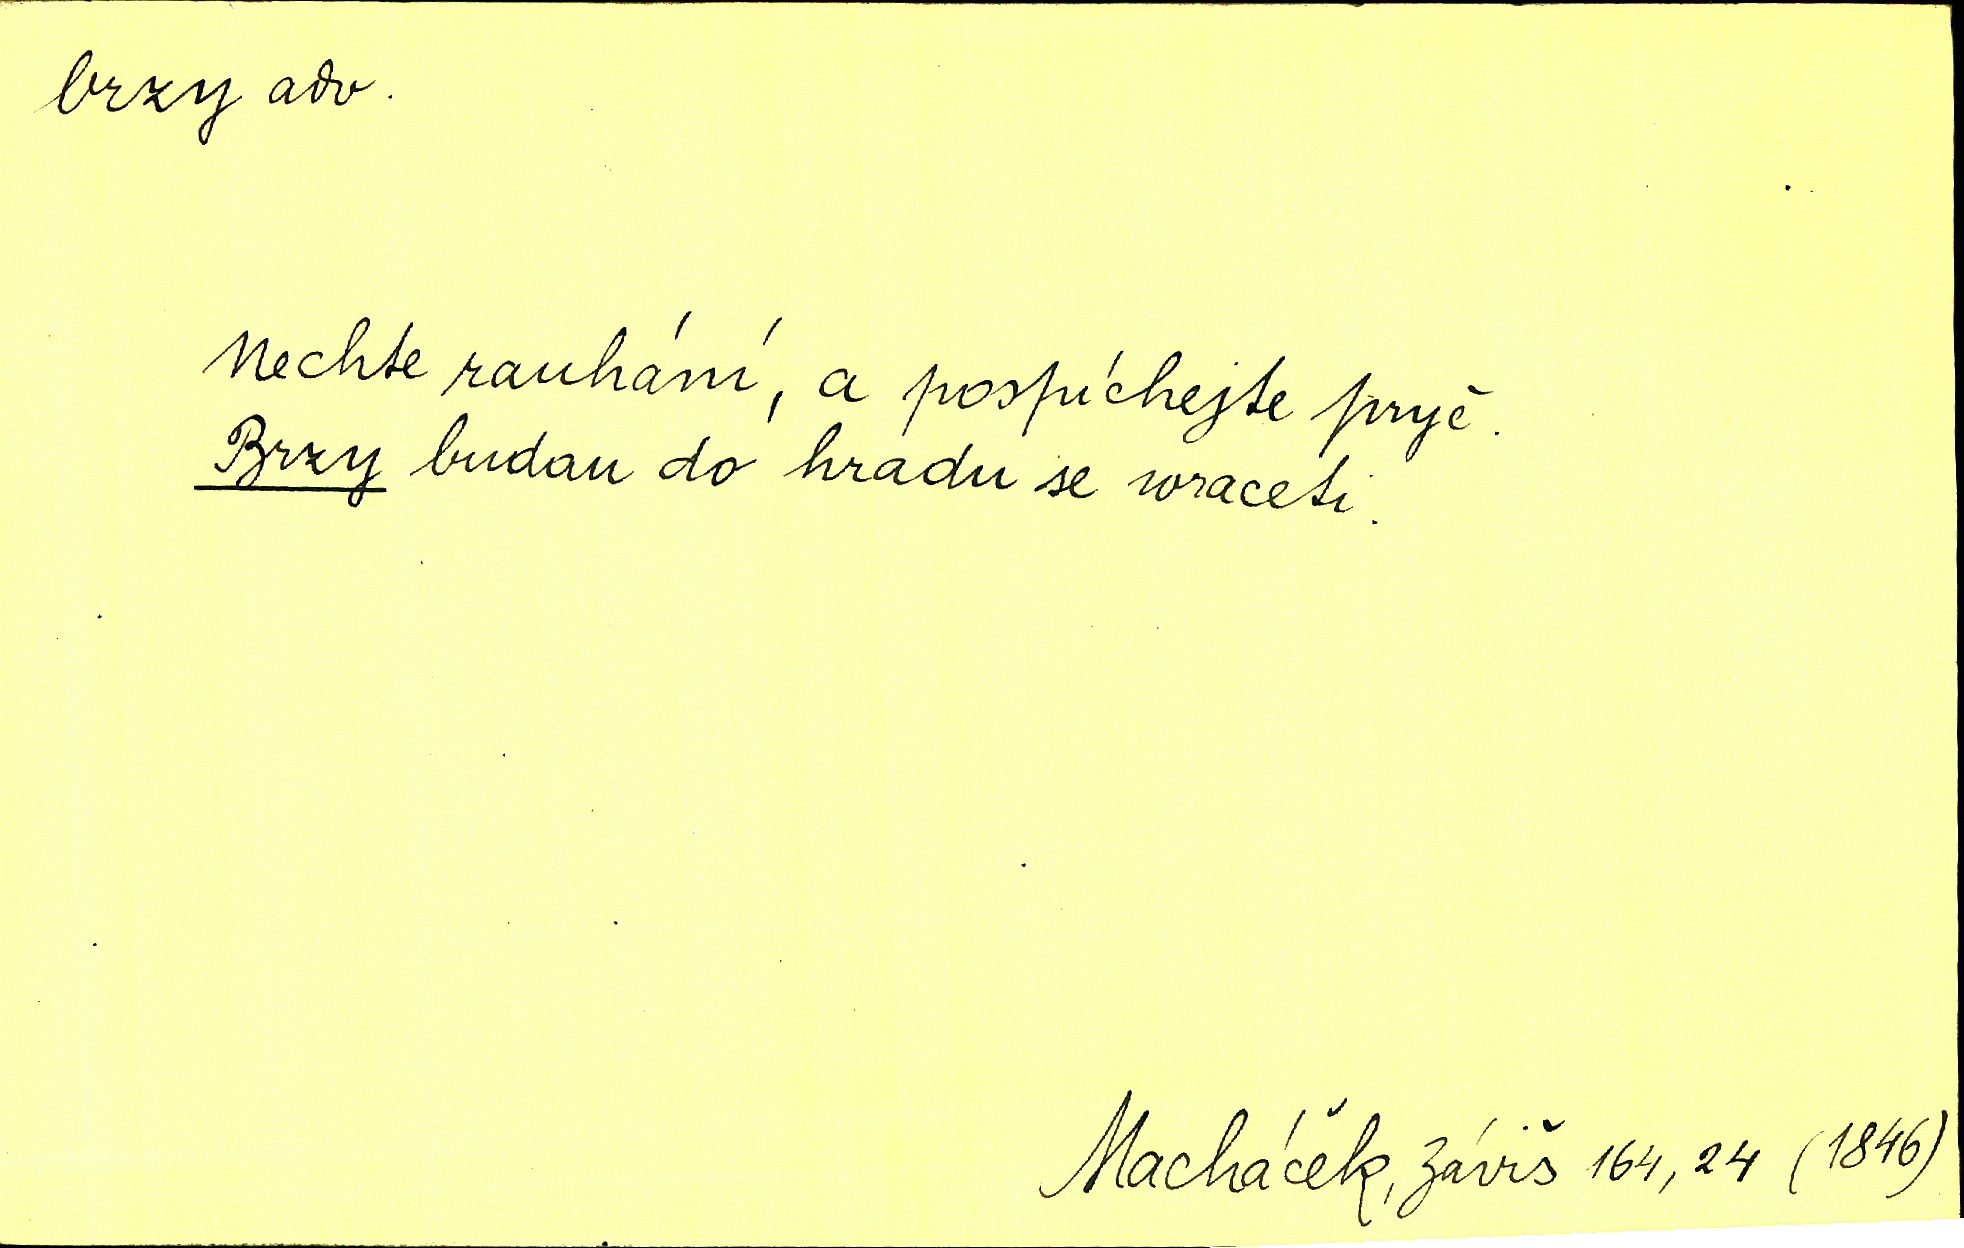 brzy adv.
Nechte rauhání, a pospíchejte pryč.
Brzy budau do hradu se wraceti.
Macháček, Záviš 164, 24 (1846)